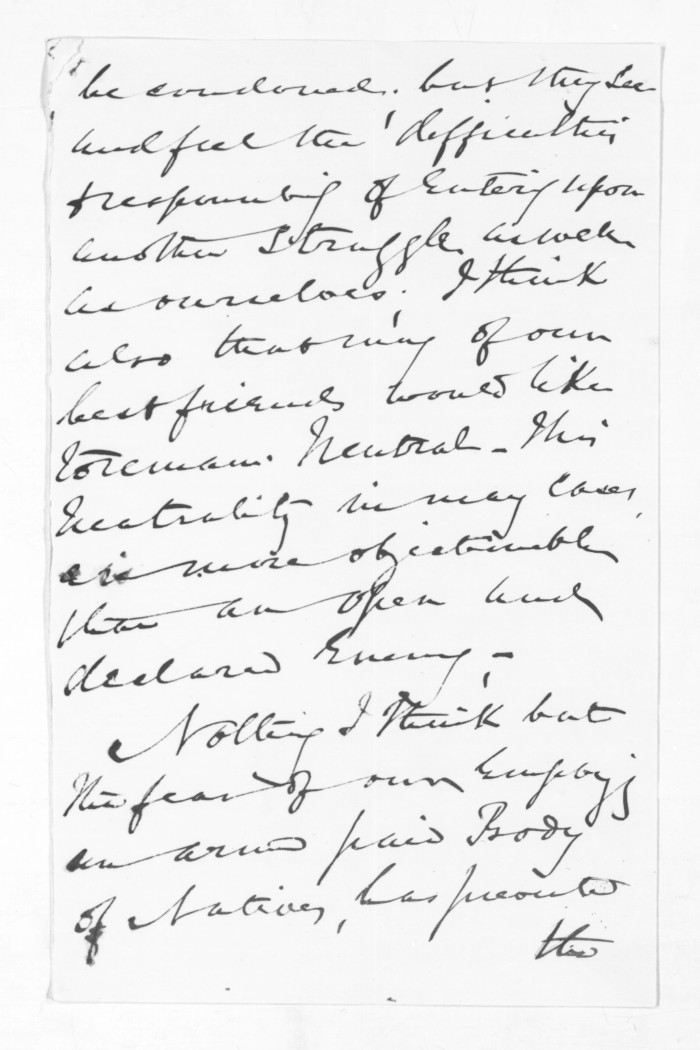 be condoned. but they see
and feel the difficulties
& responsibilty of Enterig upon
another Struggle, as well
as ourselves, I think
also that many of our
best friends would like
to remain Neutral - This
Neutrality in may Cases,
is more objectionable
than an open and
declared Enemy, -
Nothing I think but
the fear of our Employig
an armed paid Body
of Natives, has prevented
the